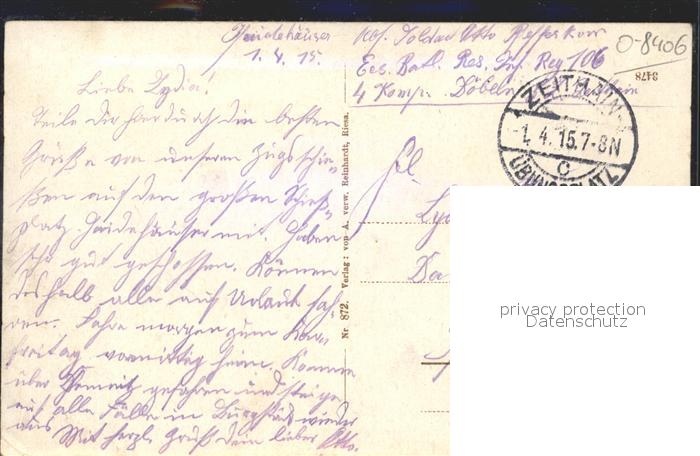 Haidehäuser
1. 4. 15.
Liebe Lydia!
Teile Dir hierdurch die besten
Grüße von unseren Zugsschie-
ßen auf den großen Schieß-
platz Haidehäuser mit. Haben
sehr gut geschossen. Können
deshalb alle auf Urlaub fah-
ren. Fahre morgen zum Kar-
freitag vormittag heim. Komme
über Chemnitz gefahren und steige
auf alle Fälle in Burgstädt wieder
aus
Mit herzl. Gruß Dein lieber Otto.
Abs. Soldat Otto
Ers. Batl. Res. Inf. Reg 106
4 Komp. Döbeln
O-8406
3478
ZEITHAIN
-1. 4. 15. 7-8N
C
ÜBUNGSPLATZ
Frl.
Nr. 872. Verlag: von A. verw. Reinhardt, Riesa.
privacy protection
Datenschutz